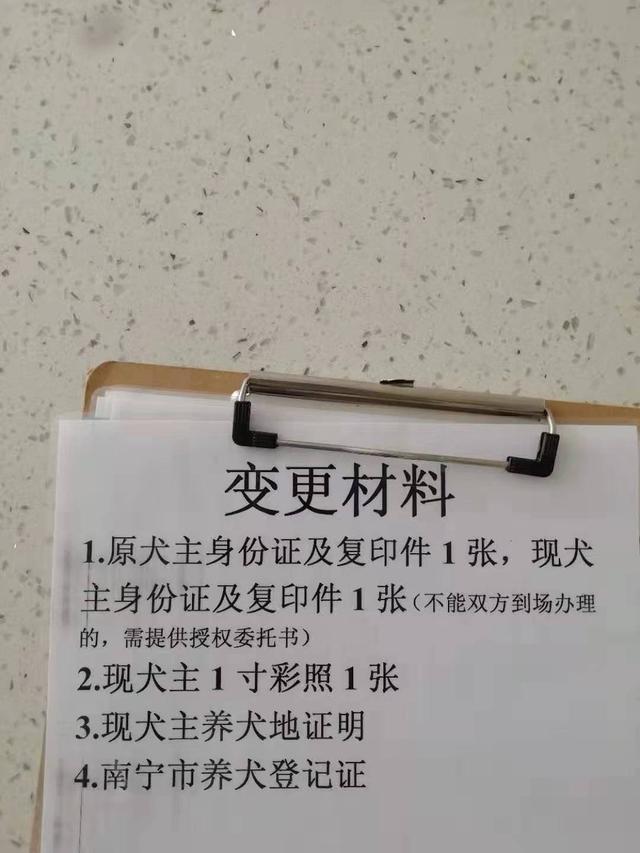 变更材料
1.原犬主身份证及复印件 1 张，现犬
主身份证及复印件 1 张（不能双方到场办理
的，需提供授权委托书）
2.现犬主 1 寸彩照 1 张
3.现犬主养犬地证明
4.南宁市养犬登记证